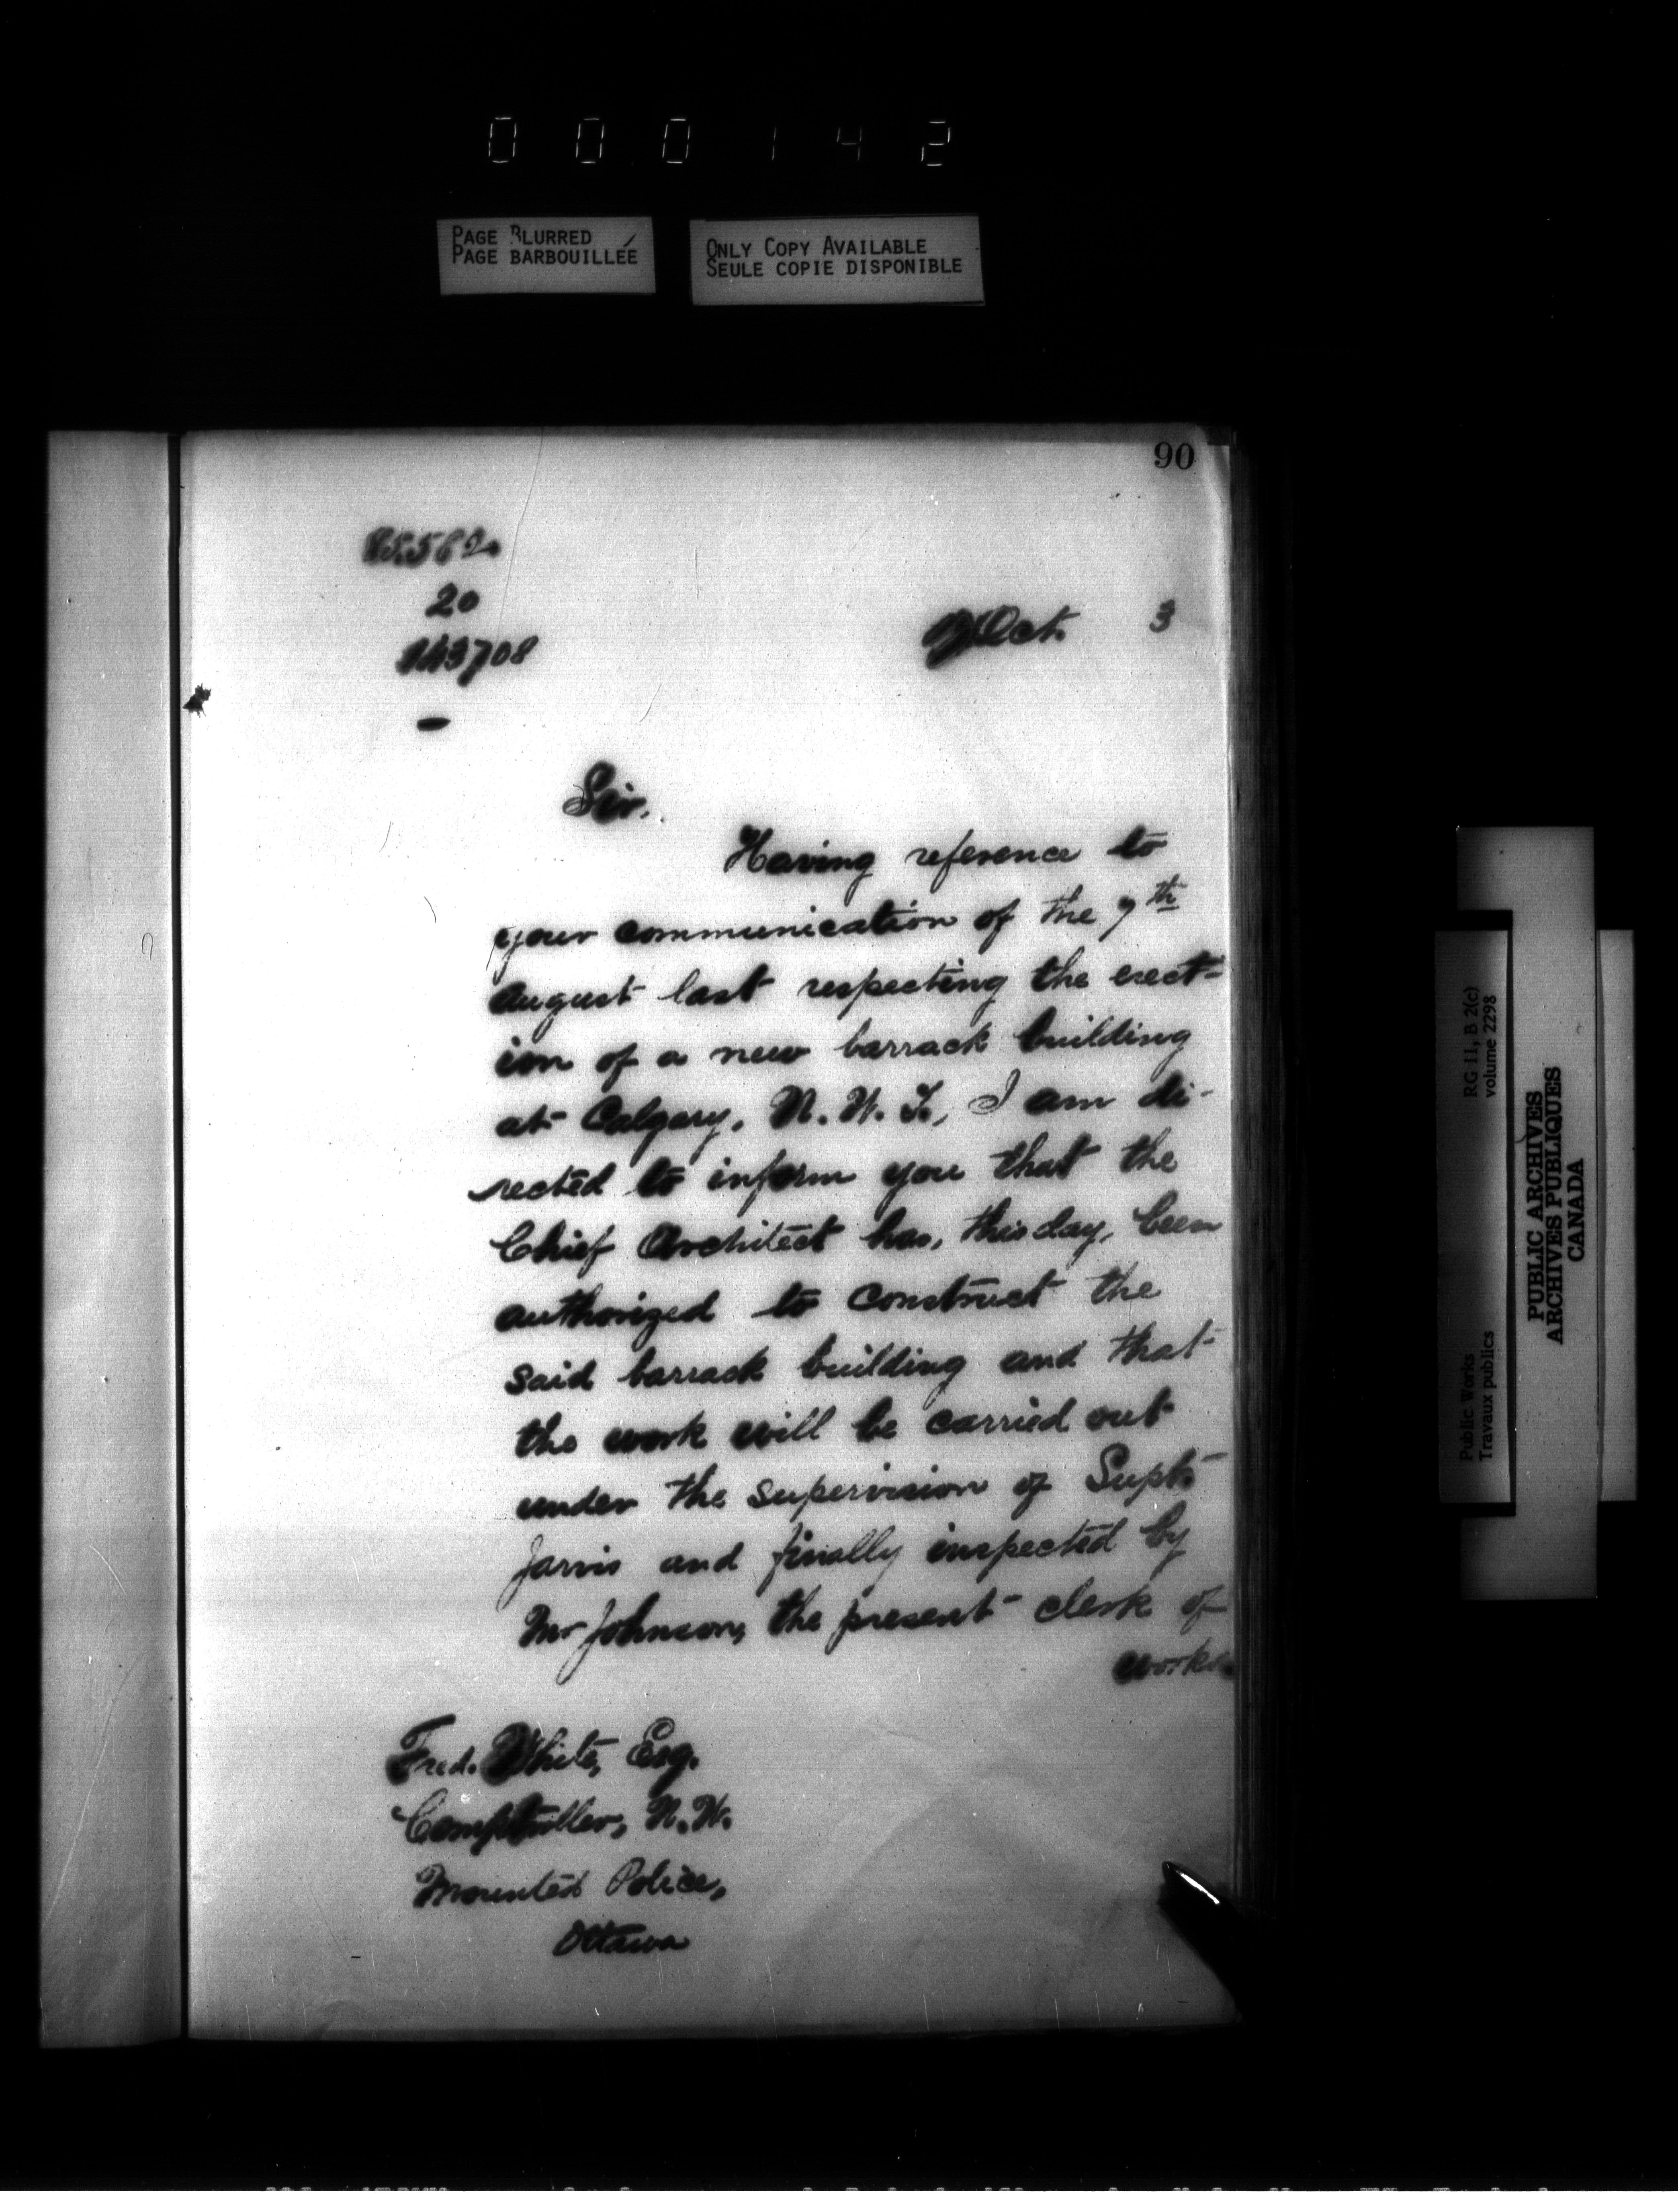 000142
PAGE BLURRED
PAGE BARBOUILLÉE
ONLY COPY AVAILABLE
SEULE COPIE DISPONIBLE
90
20
Oct. 3
Sir.
Having reference to
your communication of the 7th
August last respecting the erect-
ion of a new barrack building
at Calgary, N. W. T., I am di-
rected to inform you that the
Chief Architect has, this day, been
authorized to construct the
said barrack building and that
the work will be carried out
under the supervision of Supt.
Jarvis and finally inspected by
Mr Johnson, the present clerk of
works
Fred. White, Esq.
Comptroller, N.W.
Mounted Police,
Ottawa
Public Works
Travaux publics
RG 11, B 2(c)
volume 2298
PUBLIC ARCHIVES
ARCHIVES PUBLIQUES
CANADA